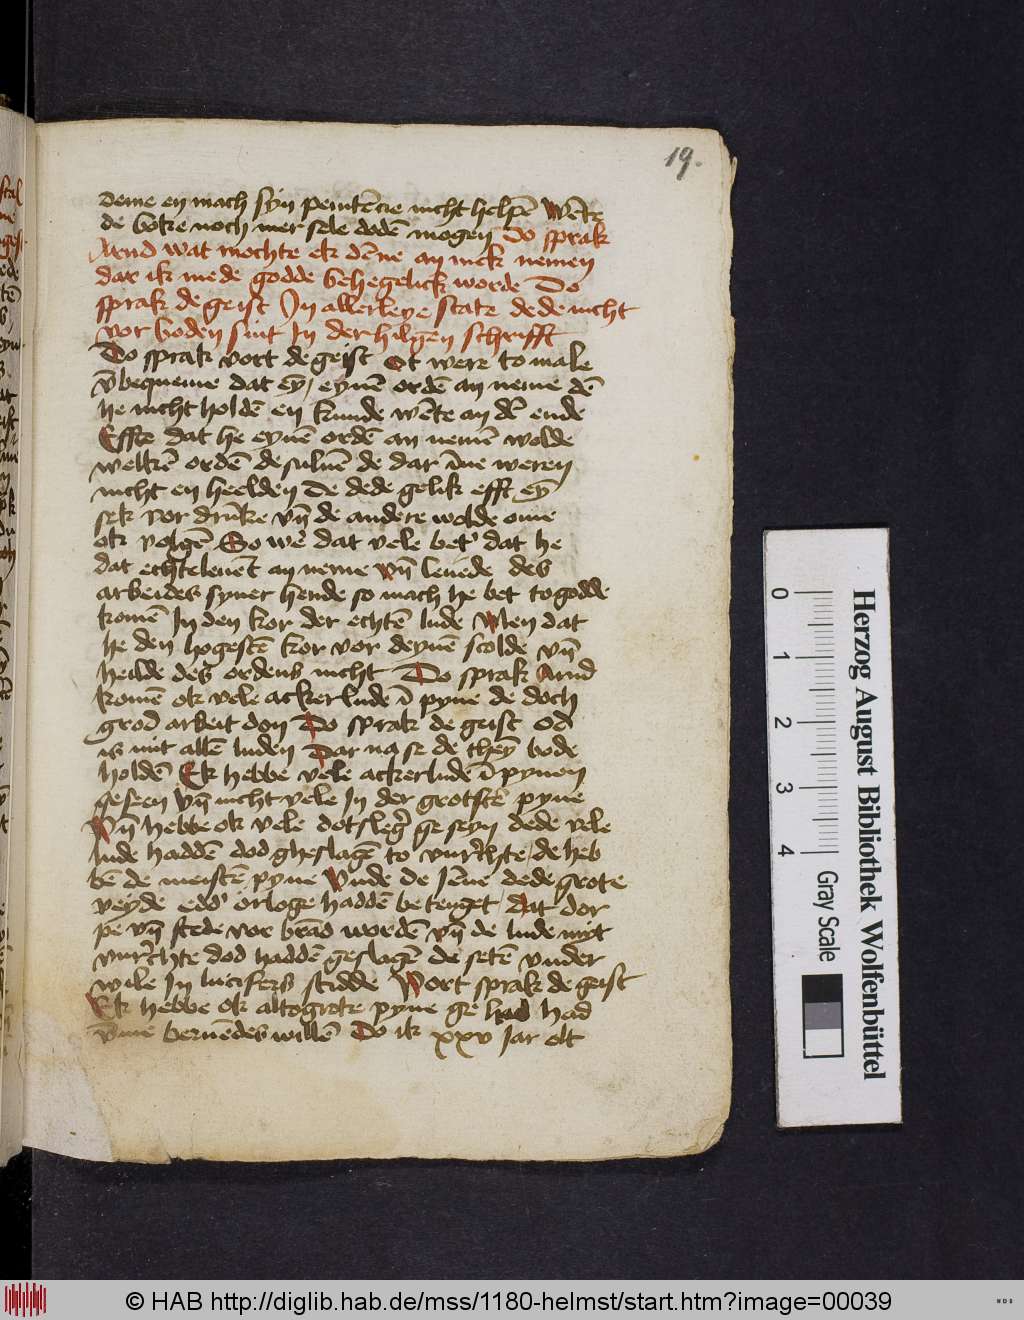 19.
deme en mach syn penitēcie nicht helpē wēte
de boke noch mer sele dodē mogen Do sprak
Arnd wat mochte ek dēne an mek nemen
dar ik mede godde behegelick worde Do
sprak de geist In allerleye state de de nicht
vor boden sint In der hilgen schrifft
Do sprak vort de geist Ot were to male
v̄bequeme dat ey, eynē ordē an neme dē
he nicht holdē en kunde wēte an dē ende
Effte dat he eynē ordē an nemē wolde
welkē ordē de suluē de dar īne weren
nicht en heelden De dede gelik efft eȳ
sek vor drūke vn̄ de andere wolde ome
ok volgē So we dat vele bet' dat he
dat echteleuent an neme vn̄ leuede des
arbeides syner hende so mach he bet to godde
komē In den kor der echtē lude Wen dat
he den hogestē kor vor deynē scolde vn̄
heilde des ordens nicht Do sprak Arnd
komē ok vele ackerlude ī pyne de doch
grod arbeit don Do sprak de geist Od
is mit allē luden Dar na se de theȳ bode
holdē Ek hebbe vele ackerludē ī pynen
geseen vn̄ nicht vele In der grotstē pyne
Vn̄ hebbe ok vele dotsleg' ge seyn dede vele
lude haddē dod gheslagē to vnr'chte, de heb
bē de meistē pyne Vnde de Jēne dede grote
veyde edd' orloge haddē betenget, dat dor
pe vn̄ stede vor brād wordē vn̄ de lude myt
vnr'chte dod haddē geslagē de setē vnder
wile In lucifers stidde Vort sprak de geist
Ek hebbe ok alto grote pyne ge had
v̄me beruēdes willē Do ik xxv jar olt
0 1 2 3 4
Gray Scale
Herzog August Bibliothek Wolfenbüttel
© HAB http://diglib.hab.de/mss/1180-helmst/start.htm?image=00039